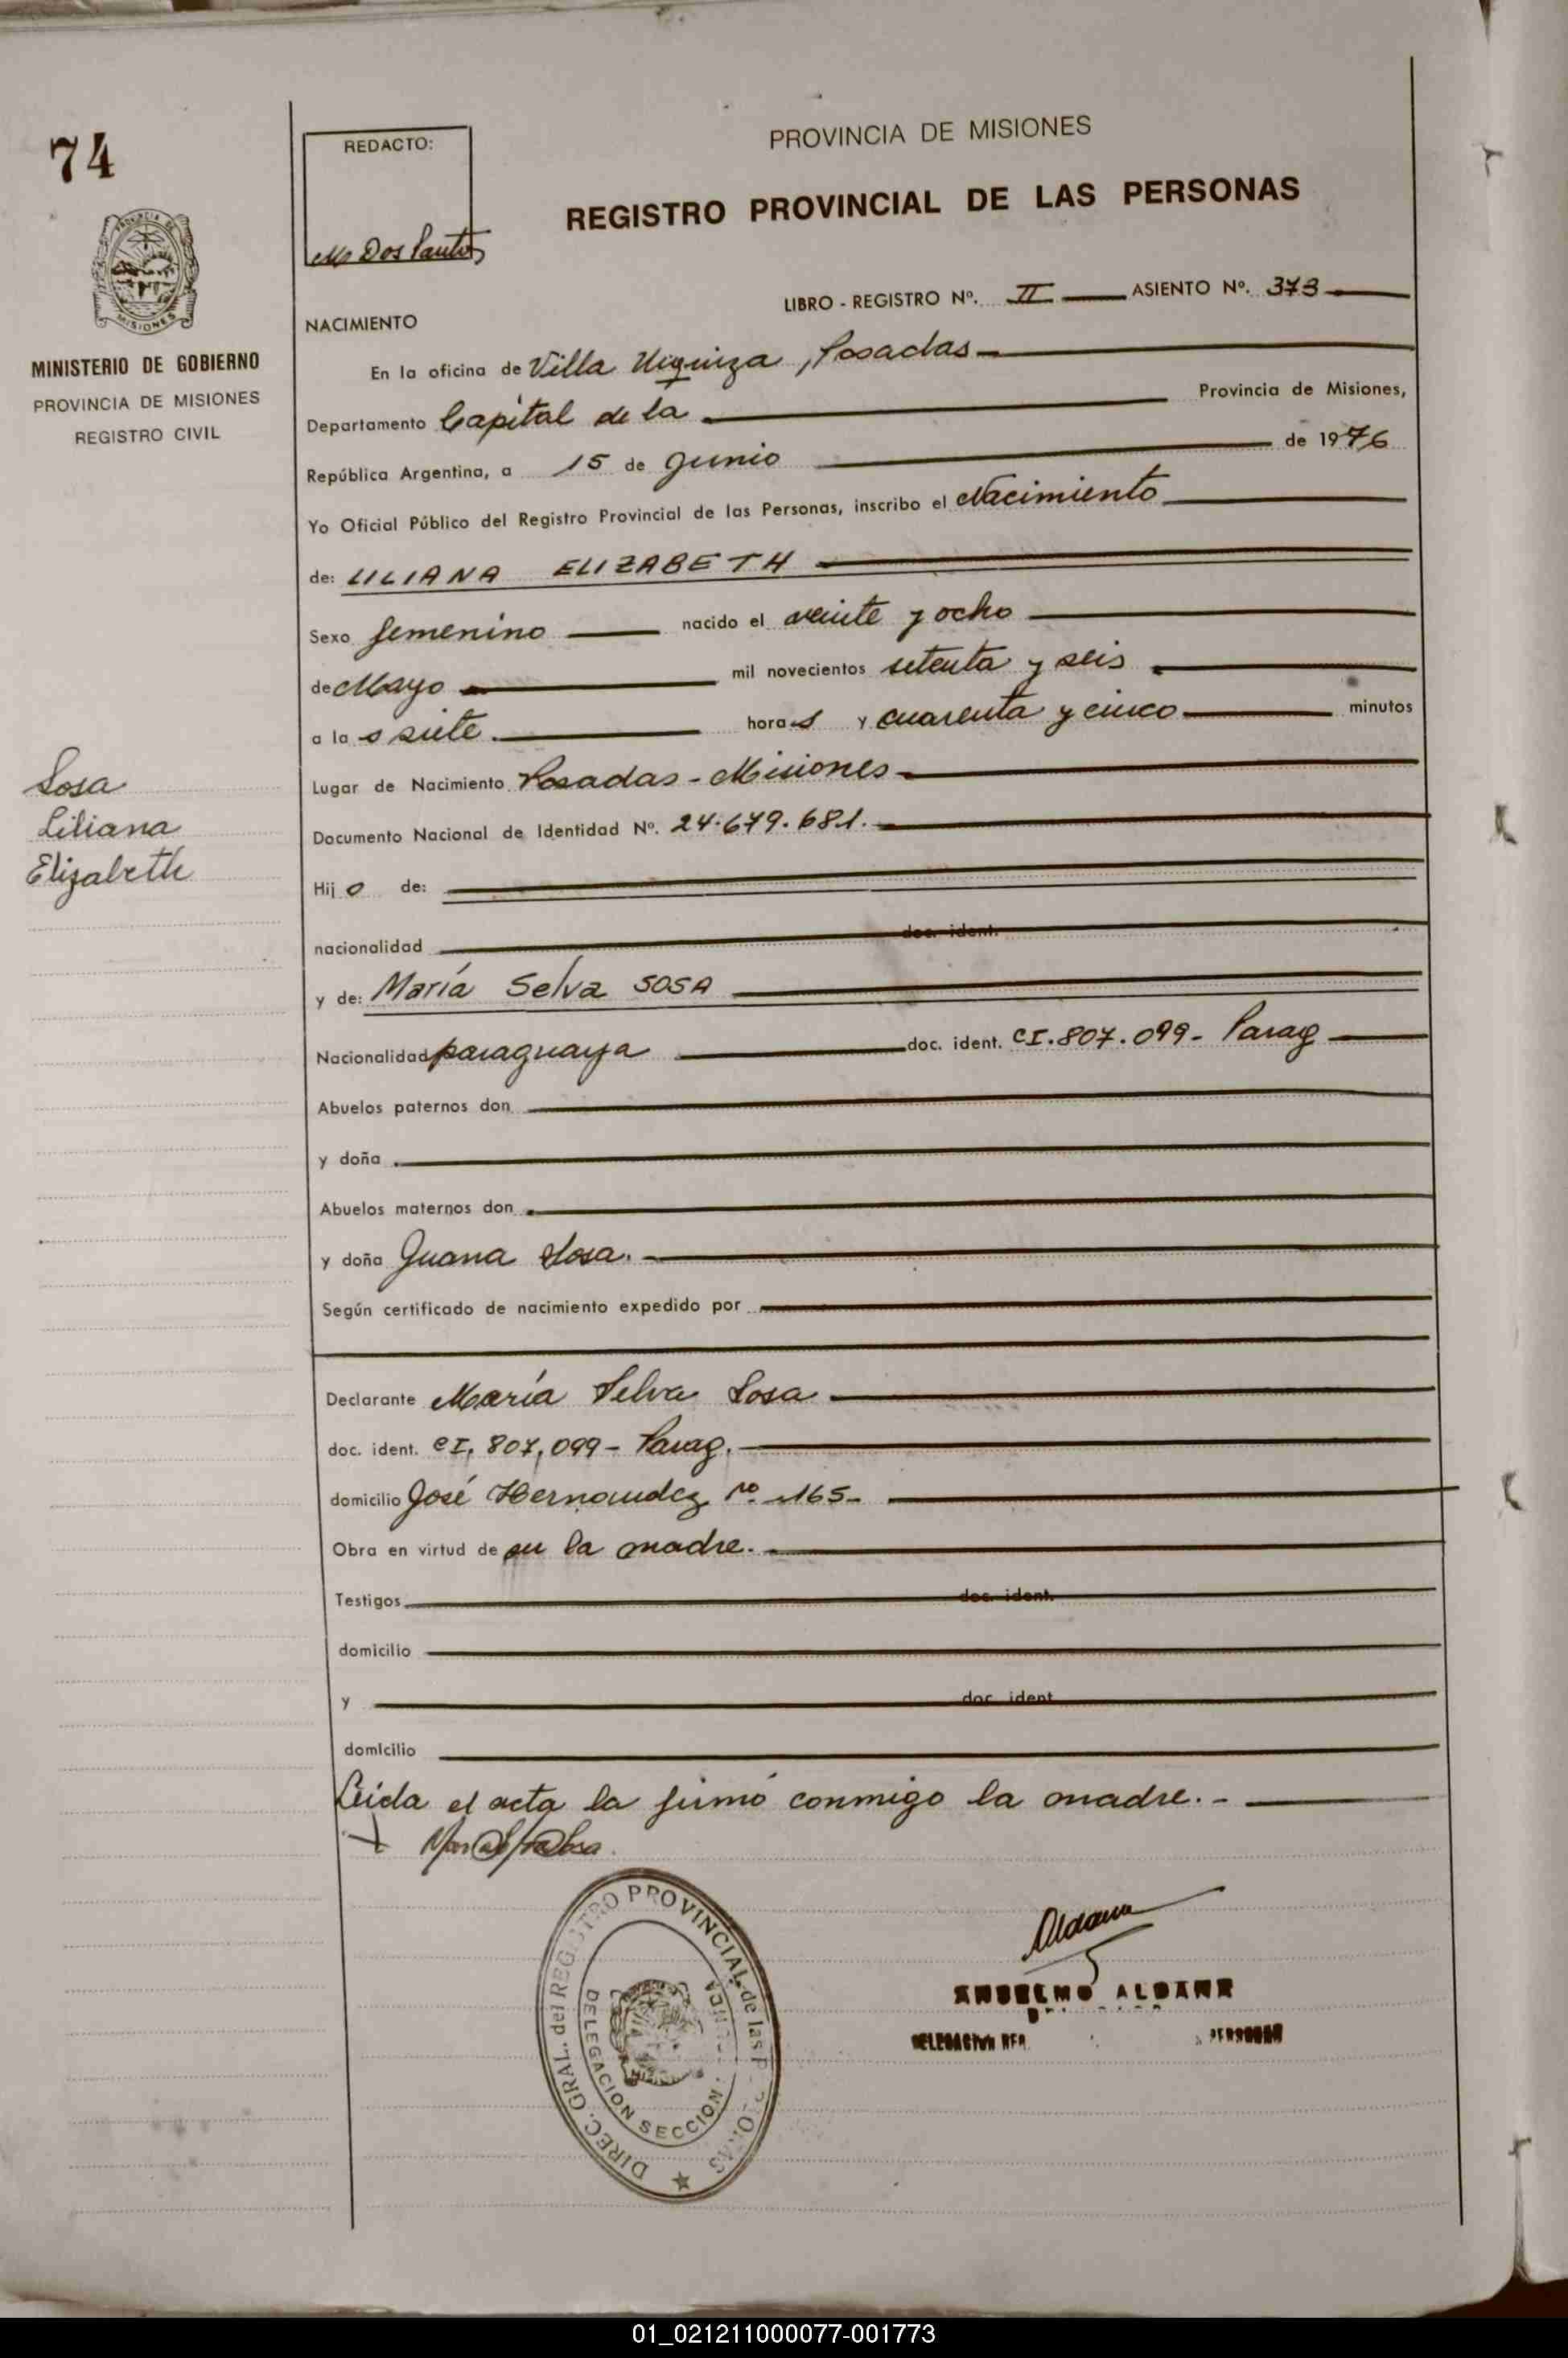 74
MINISTERIO DE GOBIERNO
PROVINCIA DE MISIONES
REGISTRO CIVIL
Sosa
Liliana
Elizabeth
REDACTO:
M Dos Santos
PROVINCIA DE MISIONES
REGISTRO PROVINCIAL DE LAS PERSONAS
LIBRO - REGISTRO Nº. II ASIENTO Nº. 373
NACIMIENTO
En la oficina de Villa Urquiza, Posadas
Departamento Capital de la Provincia de Misiones,
República Argentina, a 15 de Junio de 1976
Yo Oficial Público del Registro Provincial de las Personas, inscribo el Nacimiento
de: LILIANA ELIZABETH
Sexo femenino nacido el veinte y ocho
de Mayo mil novecientos setenta y seis
a la s siete. hora s y cuarenta y cinco minutos
Lugar de Nacimiento Posadas - Misiones
Documento Nacional de Identidad Nº. 24.679.681.
Hij o de:
nacionalidad doc. ident.
y de: María Selva SOSA
Nacionalidad paraguaya doc. ident. CI. 807.099- Parag
Abuelos paternos don
y doña
Abuelos maternos don
y doña Juana Sosa.
Según certificado de nacimiento expedido por
Declarante María Selva Sosa
doc. ident. CI. 807,099 - Parag.
domicilio José Hernandez Nº 165-
Obra en virtud de su la madre.
Testigos doc. ident.
domicilio
y doc. ident
domicilio
Leida el acta la firmó conmigo la madre.-
Aldana
DIREC. GRAL. del REGISTRO PROVINCIAL de las
DELEGACION SECCION
ANSELMO ALDANA
01_021211000077-001773